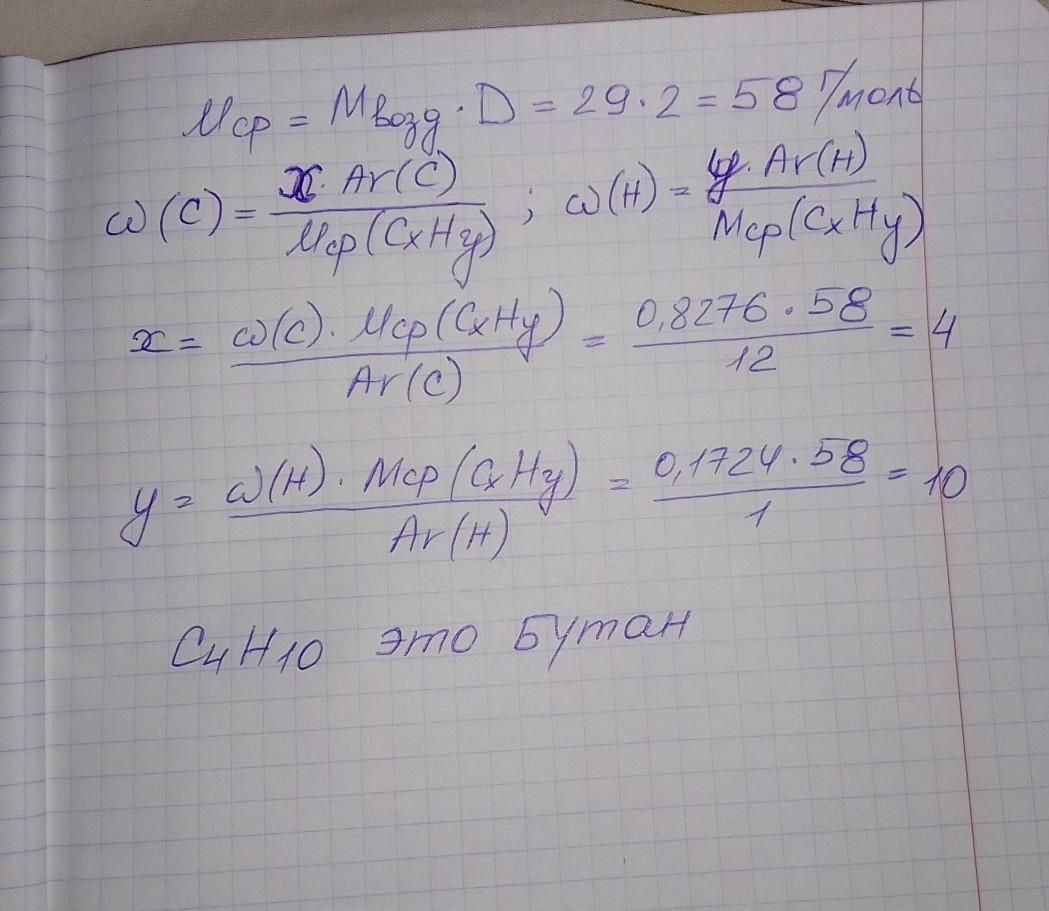 Mср = Mвозд · D = 29 · 2 = 58 г/моль
ω(C) = x · Ar(C) / Mср(CxHy) ; ω(H) = y · Ar(H) / Mср(CxHy)
x = ω(C) · Mср(CxHy) / Ar(C) = 0,8276 · 58 / 12 = 4
y = ω(H) · Mср(CxHy) / Ar(H) = 0,1724 · 58 / 1 = 10
C4H10 это Бутан